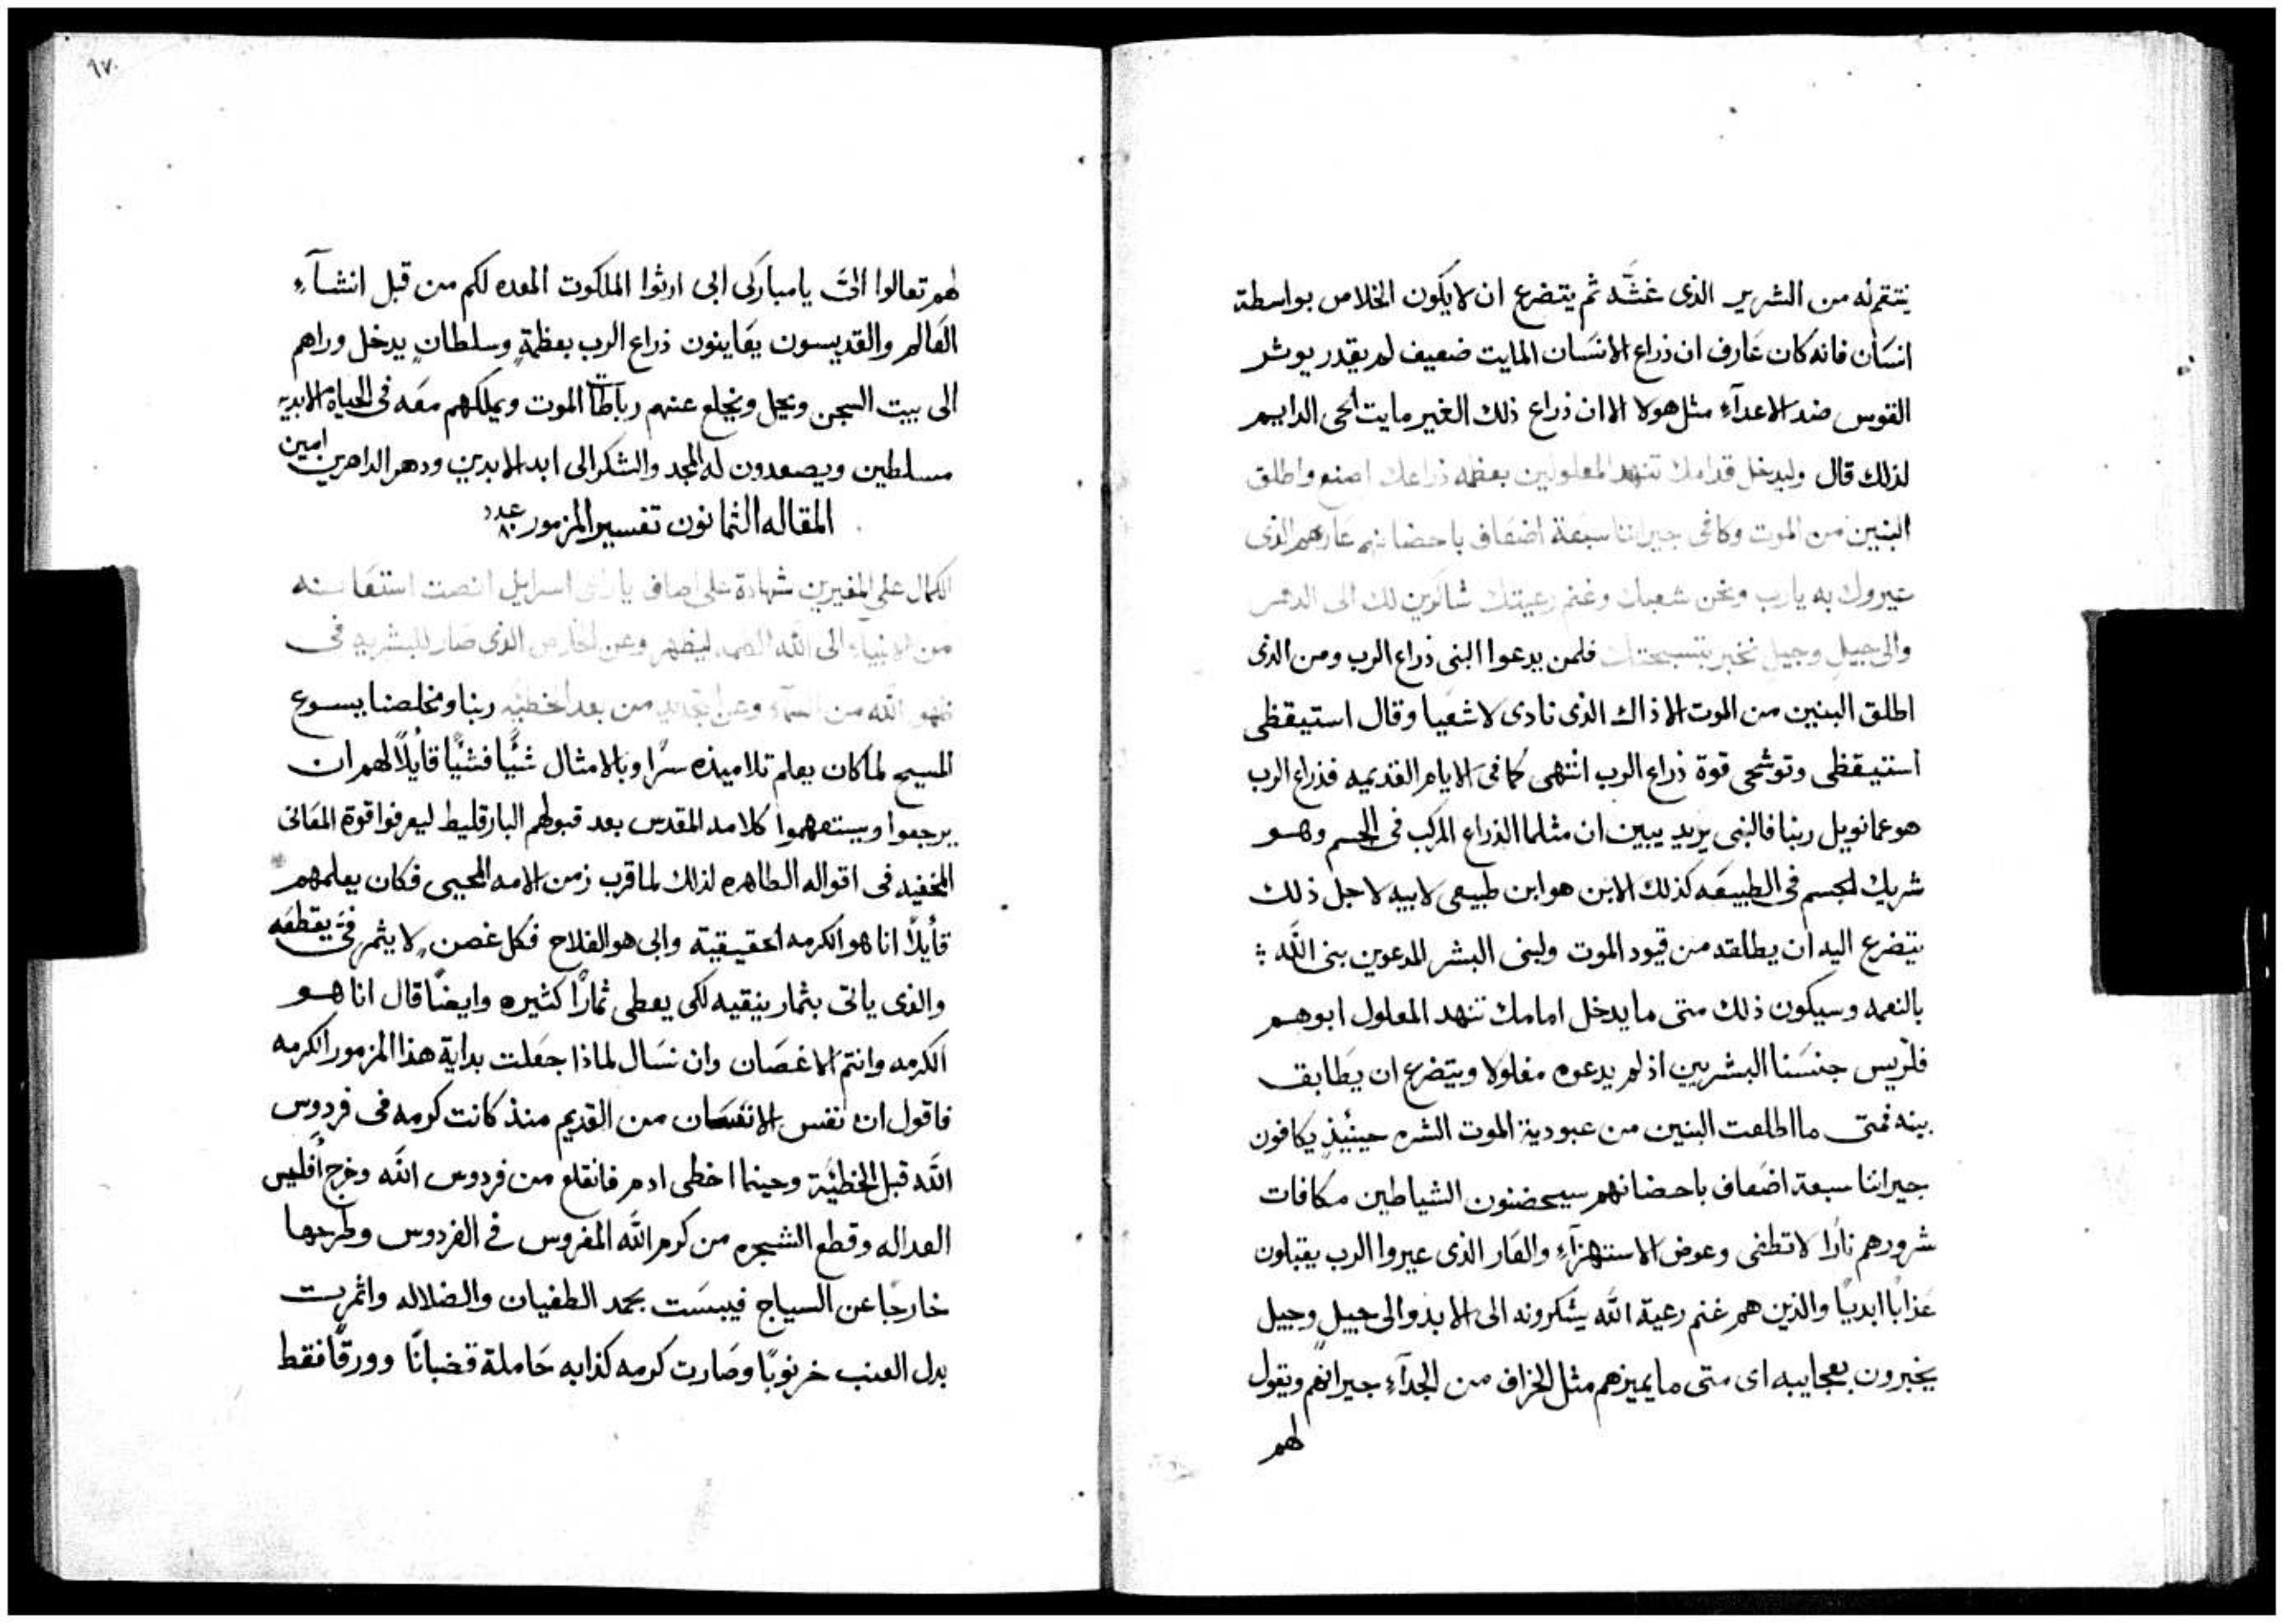 ينتقم له من الشرير الذى غشّه ثم يتضرع ان لا يكون الخلاص بواسطة
انسان فانه كان عارف ان ذراع الانسان المايت ضعيف لم يقدر يوتر
القوس ضد الاعدآء مثل هولا الا ان ذراع ذلك الغير مايت الحى الدايم
لذلك قال وليدخل قدامك تنهد المغلولين بعظمه ذراعك اصنع واطلق
البنين من الموت وكافى جيراننا سبعة اضعاف باحضانهم عارهم الذى
عيروك به يارب ونحن شعبك وغنم رعيتك شاكرين لك الى الدهر
والى جيل وجيل نخبر بتسبحتك فلمن يدعوا النبى ذراع الرب ومن الذى
اطلق البنين من الموت الا ذاك الذى نادى لاشعيا وقال استيقظى
استيقظى وتوشحى قوة ذراع الرب انتهى كما فى الايام القديمه فذراع الرب
هو عمانويل ربنا فالنبى يريد يبين ان مثلما الذراع المركب فى الجسم وهو
شريك للجسم فى الطبيعه كذلك الابن هو ابن طبيعى لابيه لاجل ذلك
يتضرع اليه ان يطلقه من قيود الموت ولبنى البشر المدعوين بنى الله
بالنعمه وسيكون ذلك متى ما يدخل امامك تنهد المغلول ابوهم
فلريس جنسنا البشريين اذ لم يدعوه مغلولا ويتضرع ان يطابق
بينه فمتى ما اطلعت البنين من عبودية الموت الشره حينئذٍ يكافون
جيراننا سبعة اضعاف باحضانهم سيحضنون الشياطين مكافات
شرورهم نارًا لا تطفى وعوض الاستهزآء والعار الذى عيروا الرب يقبلون
عذابًا ابديًا والذين هم غنم رعية الله يشكرونه الى الابد والى جيلٍ وجيل
يخبرون بعجايبه اى متى ما يميزهم مثل الخراف من الجدآء جيرانهم ويقول
لهم
٩٧
لهم تعالوا الىّ يا مباركى ابى ارثوا الملكوت المعده لكم من قبل انشآء
العالم والقديسون يعاينون ذراع الرب بعظمةٍ وسلطانٍ يدخل وراهم
الى بيت السجن ويحل ويخلع عنهم رباطات الموت ويملكهم معه فى الحياة الابديه
مسلطين ويصعدون له المجد والشكر الى ابد الابدين ودهر الداهرين امين
المقاله الثمانون تفسير المزمور عدد ٨٠
الكمال على المغيرين شهادة على اصاف يا راعى اسرايل انصت استغاثه
من الانبيآء الى الله الصمد ليظهر وعن الخلاص الذى صار للبشريه فى
ظهور الله من السمآء وعن التجديد من بعد الخطيّه ربنا ومخلصنا يسوع
المسيح لما كان يعلم تلاميذه سرًا وبالامثال شئًا فشئًا قائلًا لهم ان
يرجعوا ويستفهموا كلامه المقدس بعد قبولهم البارقليط ليعرفوا قوة المعانى
المخفيه فى اقواله الطاهره لذلك لما قرب زمن الامه المحيى فكان يعلمهم
قائلًا انا هو الكرمه الحقيقية وابى هو الفلاح فكل غصنٍ لا يثمر فىّ يقطعه
والذى ياتى بثمار ينقيه لكى يعطى ثمارًا كثيره وايضًا قال انا هو
الكرمه وانتم الاغصان وان نسال لماذا جعلت بداية هذا المزمور الكرمه
فاقول ان نفس الانسان من القديم منذ كانت كرمه فى فردوس
الله قبل الخطيّة وحينما اخطى ادم فانقلع من فردوس الله وخرج اقليس
العداله وقطع الشجره من كرم الله المغروس فى الفردوس وطرحها
خارجًا عن السياج فيبست بحمد الطغيان والضلاله واثمرت
بدل العنب خرنوبًا وصارت كرمه كذابه حاملة قضبانًا وورقًا فقط